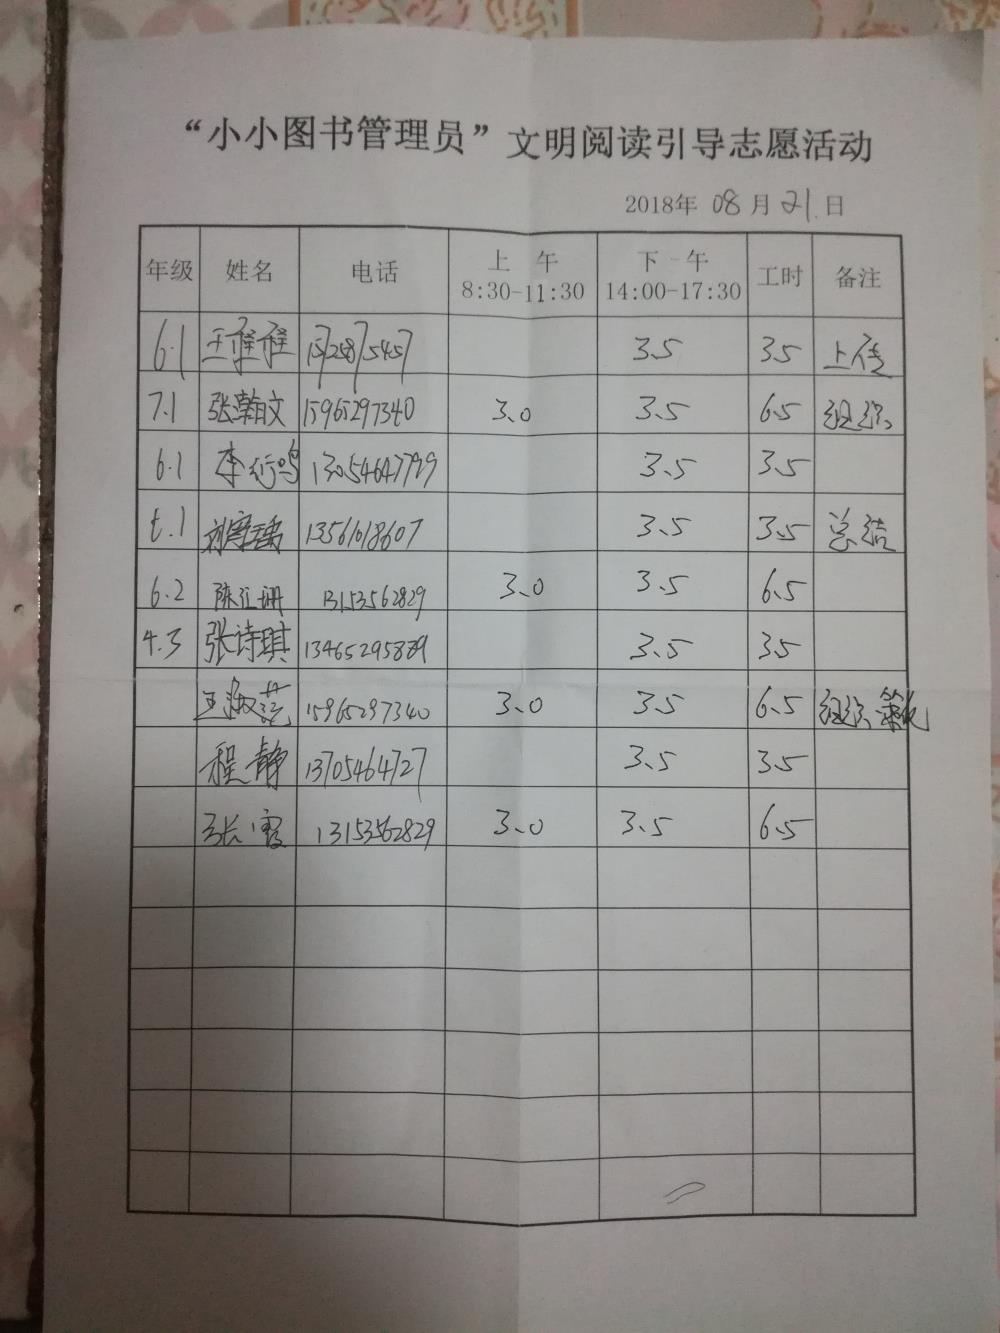 “小小图书管理员”文明阅读引导志愿活动
2018年 08 月 21 日
年级 姓名 电话 上 午 8:30-11:30 下 午 14:00-17:30 工时 备注
6.1 王程程 3.5 3.5 上传
7.1 张瀚文 15965297340 3.0 3.5 6.5 组织
6.1 李行鸣 13054647799 3.5 3.5
.1 刘 13561618607 3.5 3.5 总结
6.2 陈 珊 13153562829 3.0 3.5 6.5
4.3 张诗琪 3.5 3.5
王淑范 15965297340 3.0 3.5 6.5 组织
程静 13705464727 3.5 3.5
张霞 13153562829 3.0 3.5 6.5